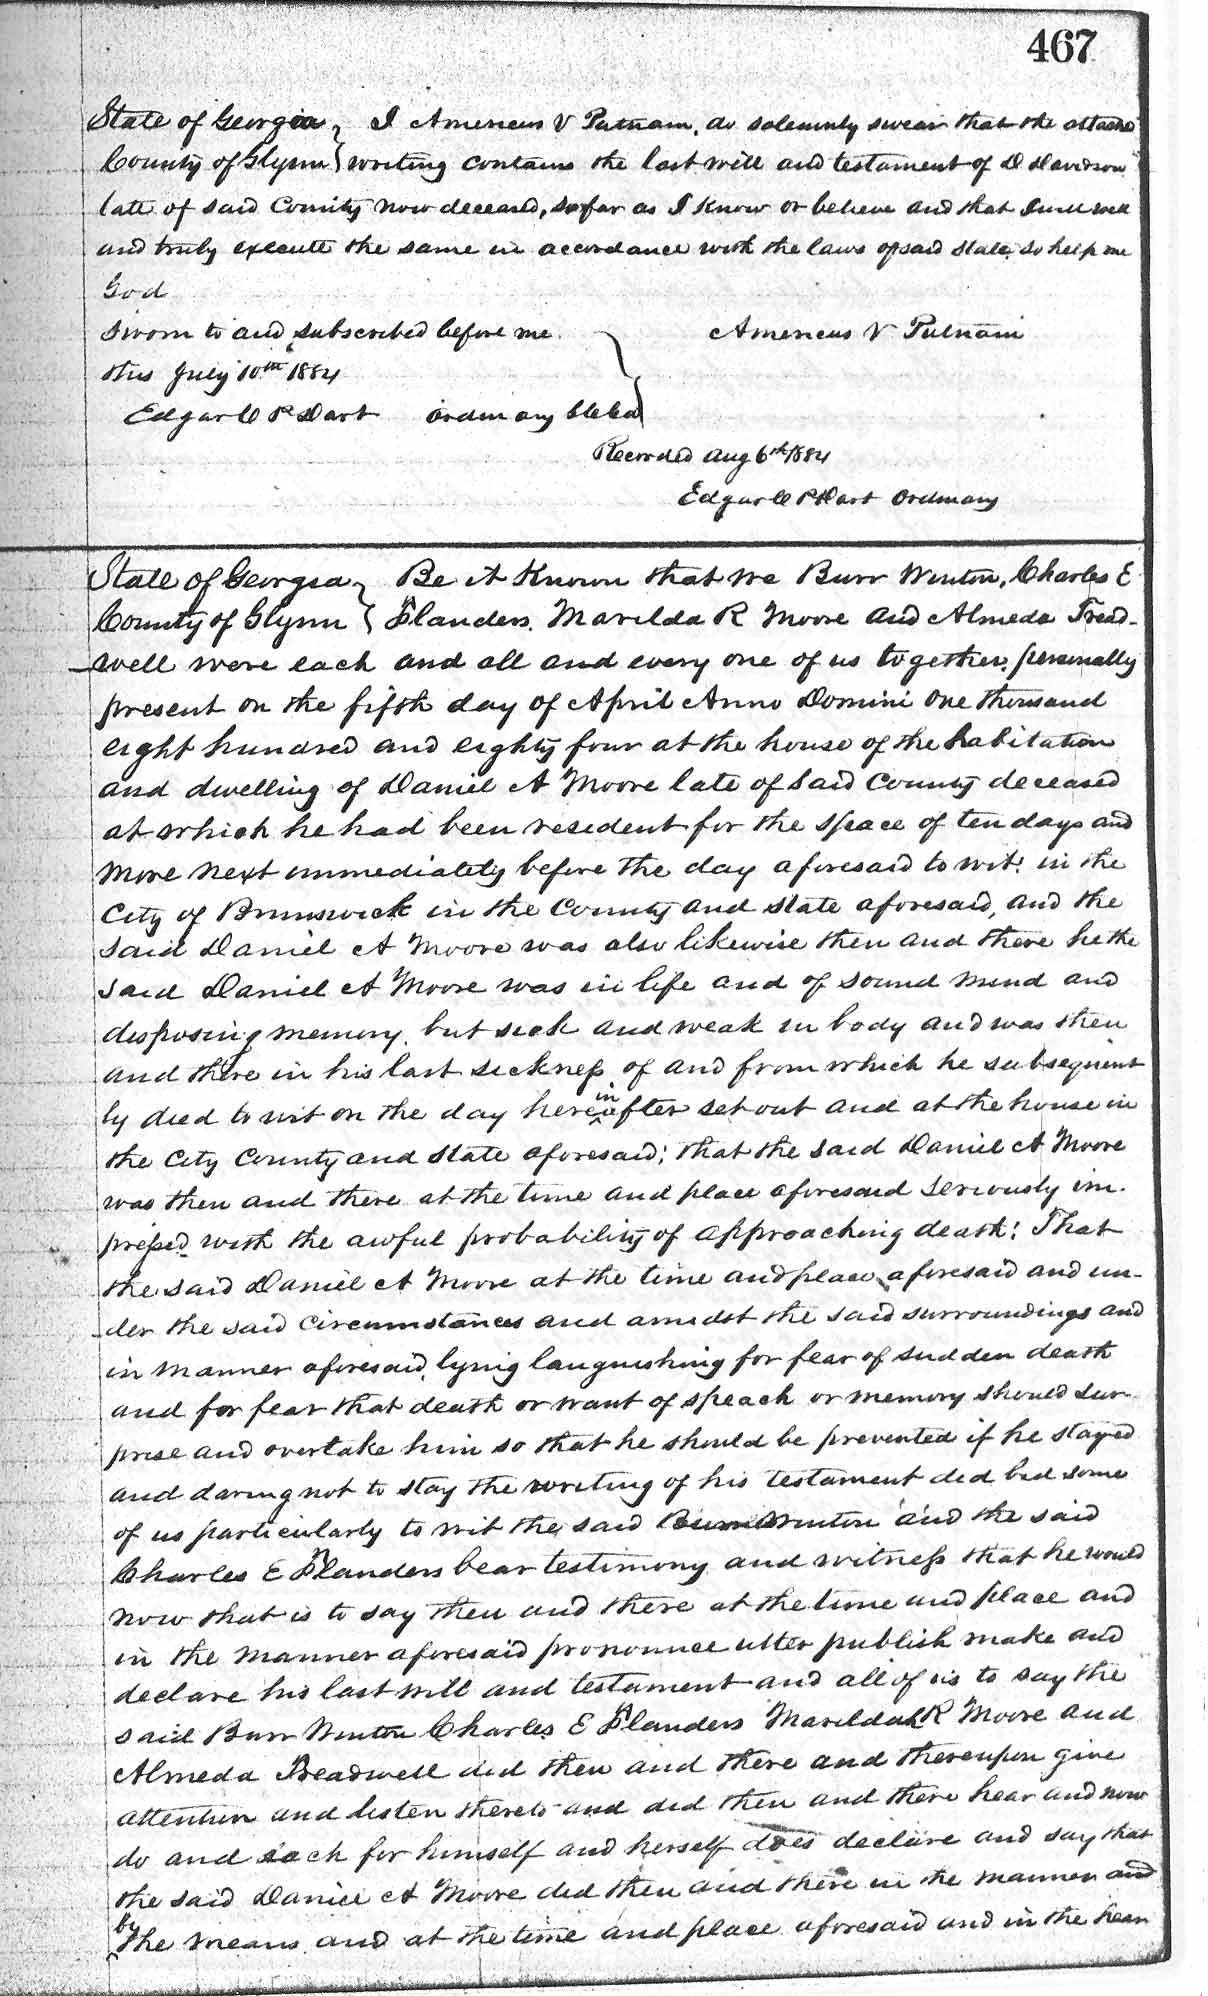 467
State of Georgia } I Americus V Putnam, do solemnly swear that the attached
County of Glynn } writing contains the last will and testament of D Davidson
late of said County now deceased, so far as I know or believe and that I will well
and truly execute the same in accordance with the laws of said State, so help me
God
Sworn to and subscribed before me } Americus V Putnam
this July 10th 1884
Edgar C P Dart Ordinary
Recorded Aug 6th 1884
Edgar C P Dart Ordinary
State of Georgia } Be it Known that we Burr Winton, Charles E
County of Glynn } Flanders, Marilda R Moore and Almeda Tread-
well were each and all and every one of us together, personally
present on the fifth day of April Anno Domini One thousand
eight hundred and eighty four at the house of the habitation
and dwelling of Daniel A Moore late of said County deceased
at which he had been resident for the space of ten days and
more next immediately before the day aforesaid to wit: in the
City of Brunswick in the County and State aforesaid, and the
said Daniel A Moore was also likewise then and there he the
said Daniel A Moore was in life and of sound mind and
disposing memory, but sick and weak in body and was then
and there in his last sickness of and from which he subsequent
ly died to wit on the day hereinafter set out and at the house in
the City County and State aforesaid; that the said Daniel A Moore
was then and there at the time and place aforesaid seriously im-
pressed with the awful probability of approaching death: That
the said Daniel A Moore at the time and place aforesaid and un-
der the said circumstances and amidst the said surroundings and
in manner aforesaid, lying languishing for fear of sudden death
and for fear that death or want of speach or memory should sur-
prise and overtake him so that he should be prevented if he stayed
and daring not to stay the writing of his testament did bid some
of us particularly to wit the said Burr Winton and the said
Charles E Flanders bear testimony and witness that he would
now that is to say then and there at the time and place and
in the manner aforesaid pronounce utter publish make and
declare his last will and testament and all of us to say the
said Burr Winton Charles E Flanders Marildah R Moore and
Almeda Treadwell did then and there and thereupon give
attention and listen thereto and did then and there hear and now
do and each for himself and herself does declare and say that
the said Daniel A Moore did then and there in the manner and
by the means and at the time and place aforesaid and in the hear